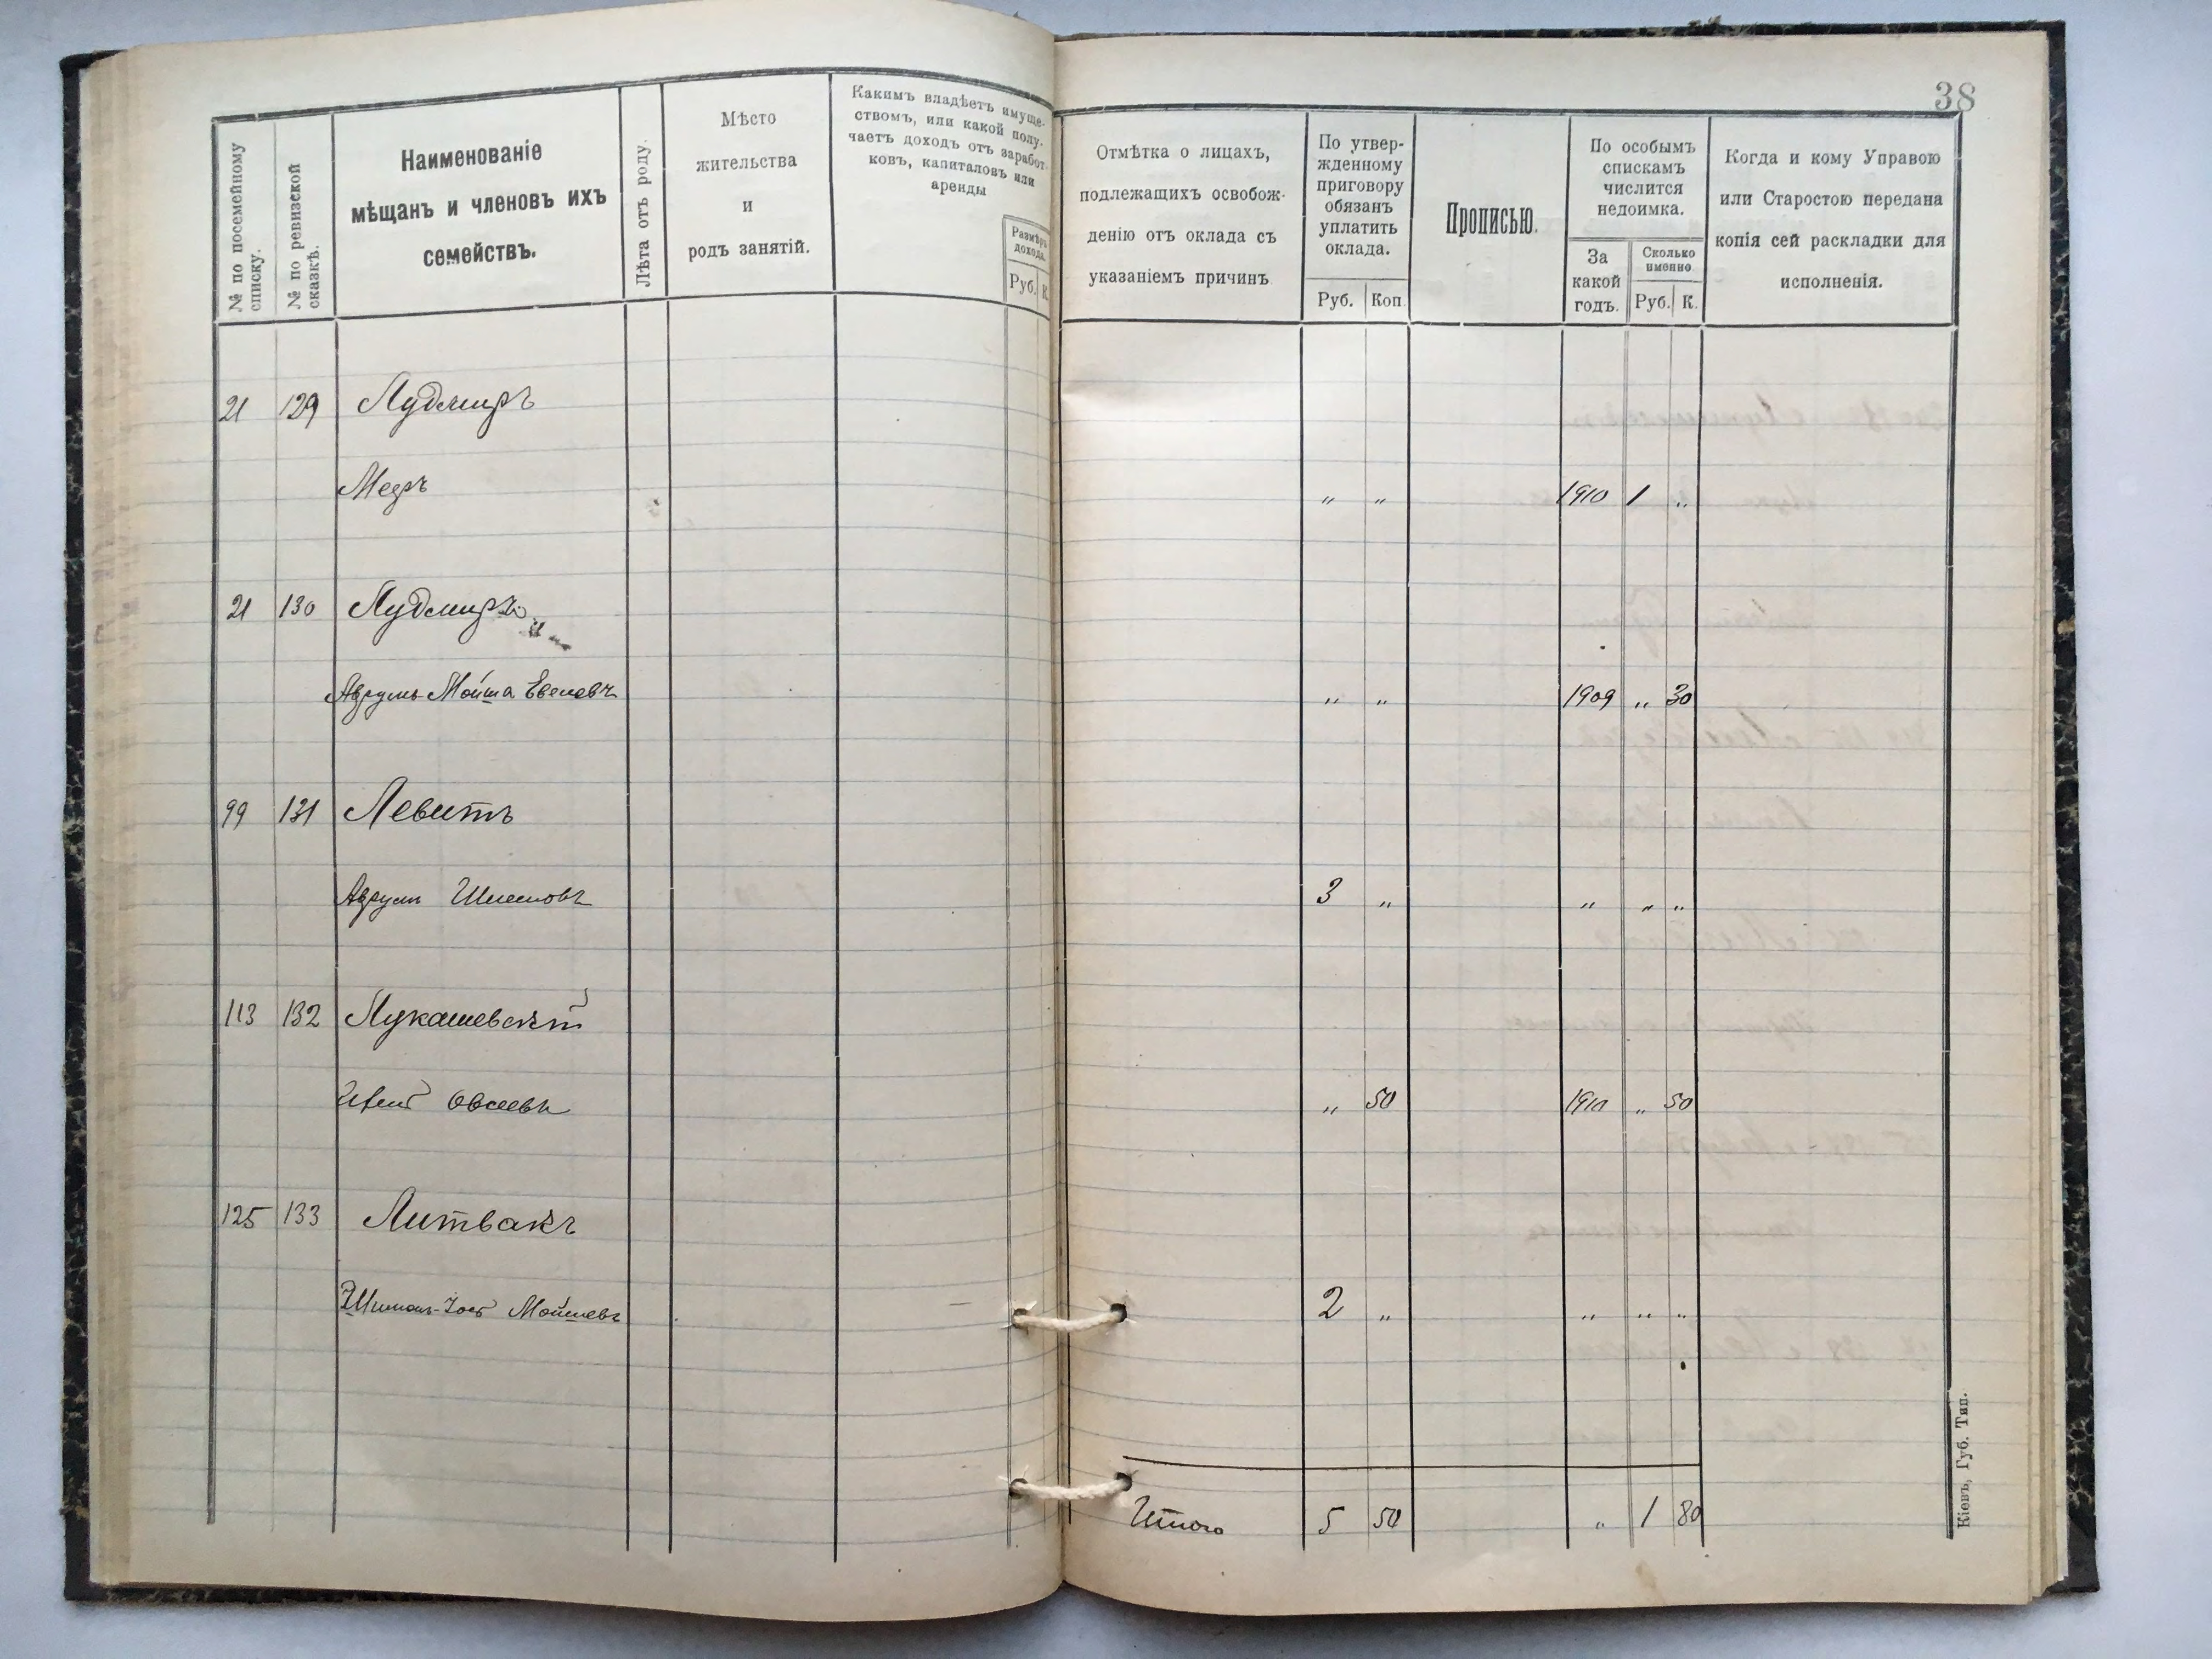 38
№ по посемейному списку.
№ по ревизской сказкѣ.
Наименованіе
мѣщанъ и членовъ ихъ
семействъ.
Лѣта отъ роду.
Мѣсто
жительства
и
родъ занятій.
Какимъ владѣетъ имуще-
ствомъ, или какой полу-
чаетъ доходъ отъ заработ-
ковъ, капиталовъ или
аренды
Размѣръ
дохода.
Руб. К.
Отмѣтка о лицахъ,
подлежащихъ освобож-
денію отъ оклада съ
указаніемъ причинъ
По утвер-
жденному
приговору
обязанъ
уплатить
оклада.
Руб. Коп.
Прописью.
По особымъ
спискамъ
числится
недоимка.
За
какой
годъ.
Сколько
именно
Руб. К.
Когда и кому Управою
или Старостою передана
копія сей раскладки для
исполненія.
21 129 Лудмиръ
Мееръ „ „ 1910 1 „
21 130 Лудмиръ
Аврумъ-Мойша Евелевъ „ „ 1909 „ 30
99 131 Левитъ
Аврумъ Шлемовъ 3 „ „ „ „
113 132 Лукашевскій
Овсеевъ „ 50 1910 „ 50
125 133 Литвакъ
Мойшевъ 2 „ „ „ „
Итого 5 50 „ 1 80
Кіевъ, Губ. Тип.